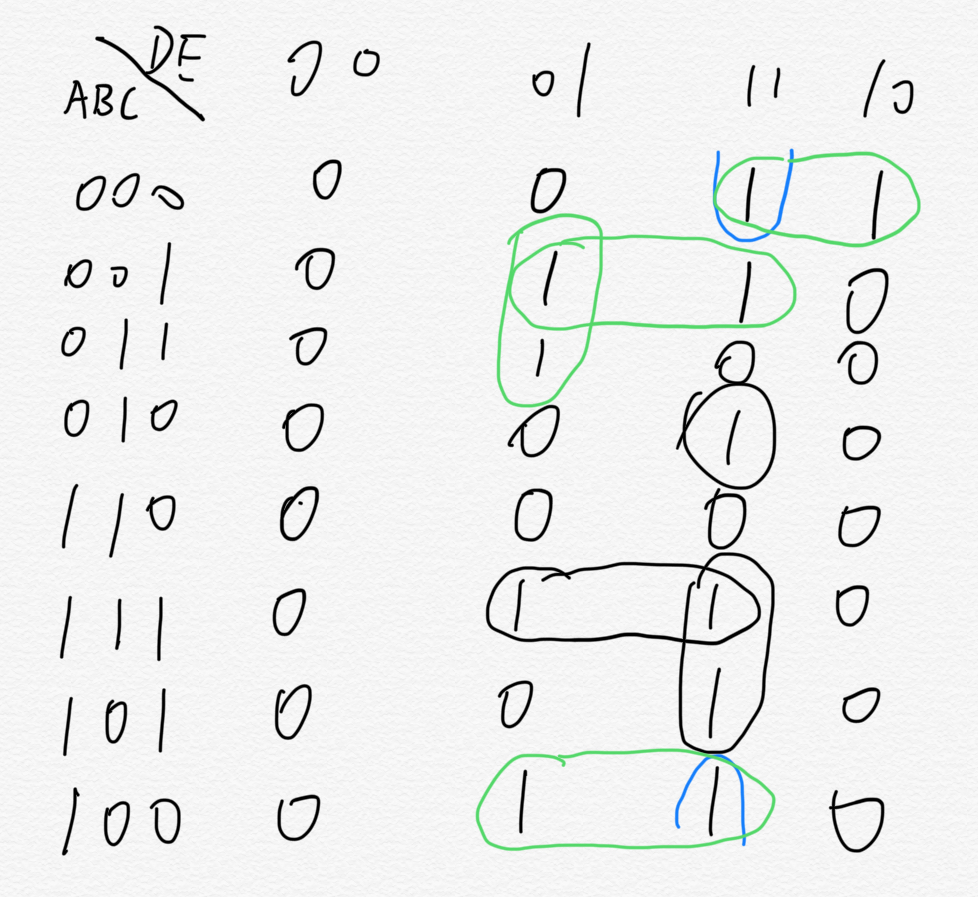 DE 00 01 11 10
ABC
000 0 0 1 1
001 0 1 1 0
011 0 1 0 0
010 0 0 1 0
110 0 0 0 0
111 0 1 1 0
101 0 0 1 0
100 0 1 1 0